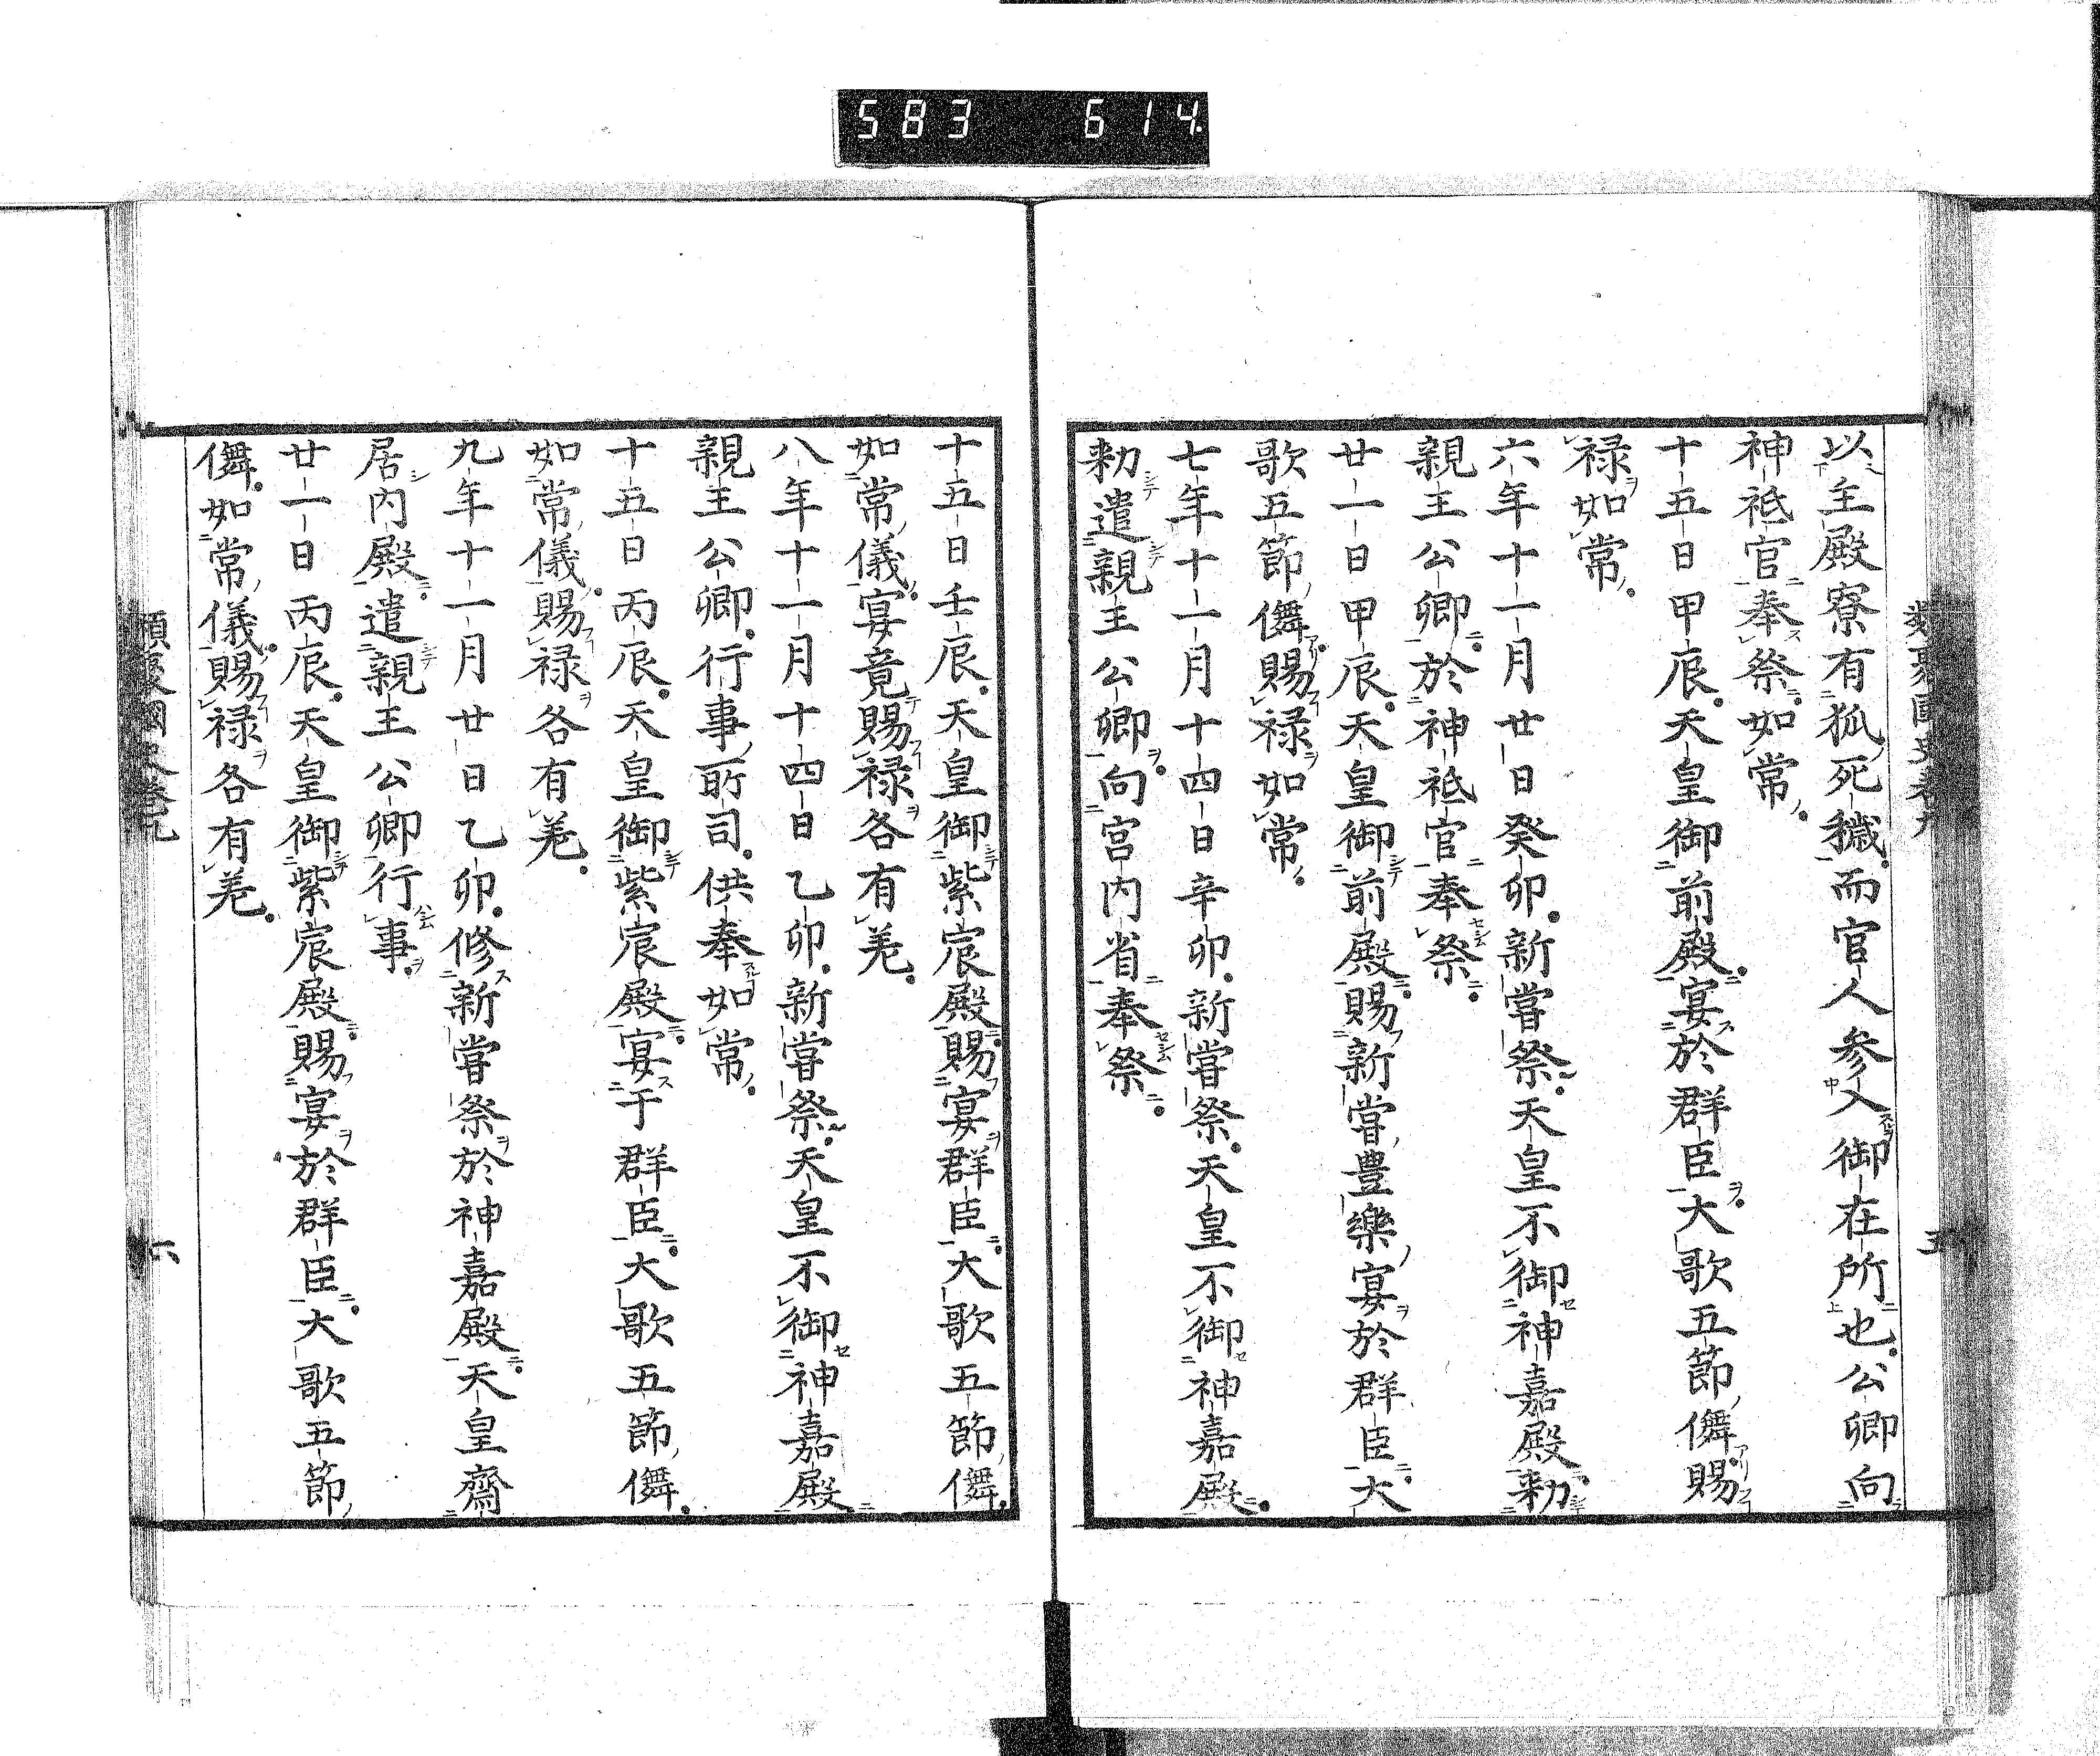 583 614
類聚國史卷九
五
以主殿寮有狐死穢而官人參入御在所也公卿向
神祇官奉祭如常
十五日甲辰天皇御前殿宴於群臣大歌五節儛賜
禄如常
六年十一月廿日癸卯新嘗祭天皇不御神嘉殿勅
親王公卿於神祇官奉祭
廿一日甲辰天皇御前殿賜新嘗豊樂宴於群臣大
歌五節儛賜禄如常
七年十一月十四日辛卯新嘗祭天皇不御神嘉殿
勅遣親王公卿向宮内省奉祭
十五日壬辰天皇御紫宸殿賜宴群臣大歌五節儛
如常儀宴竟賜禄各有差
八年十一月十四日乙卯新嘗祭天皇不御神嘉殿
親王公卿行事所司供奉如常
十五日丙辰天皇御紫宸殿宴于群臣大歌五節儛
如常儀賜禄各有差
九年十一月廿日乙卯修新嘗祭於神嘉殿天皇齋
居内殿遣親王公卿行事
廿一日丙辰天皇御紫宸殿賜宴於群臣大歌五節
儛如常儀賜禄各有差
類聚國史卷九
六